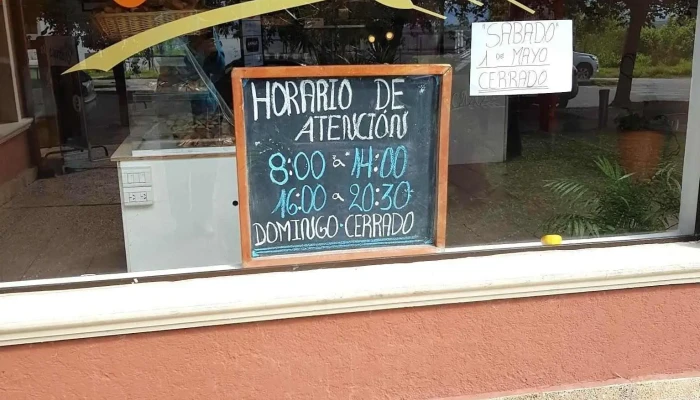 HORARIO DE
ATENCIÓN
8:00 a 14:00
16:00 a 20:30
DOMINGO·CERRADO
"SABADO"
1º MAYO
CERRADO